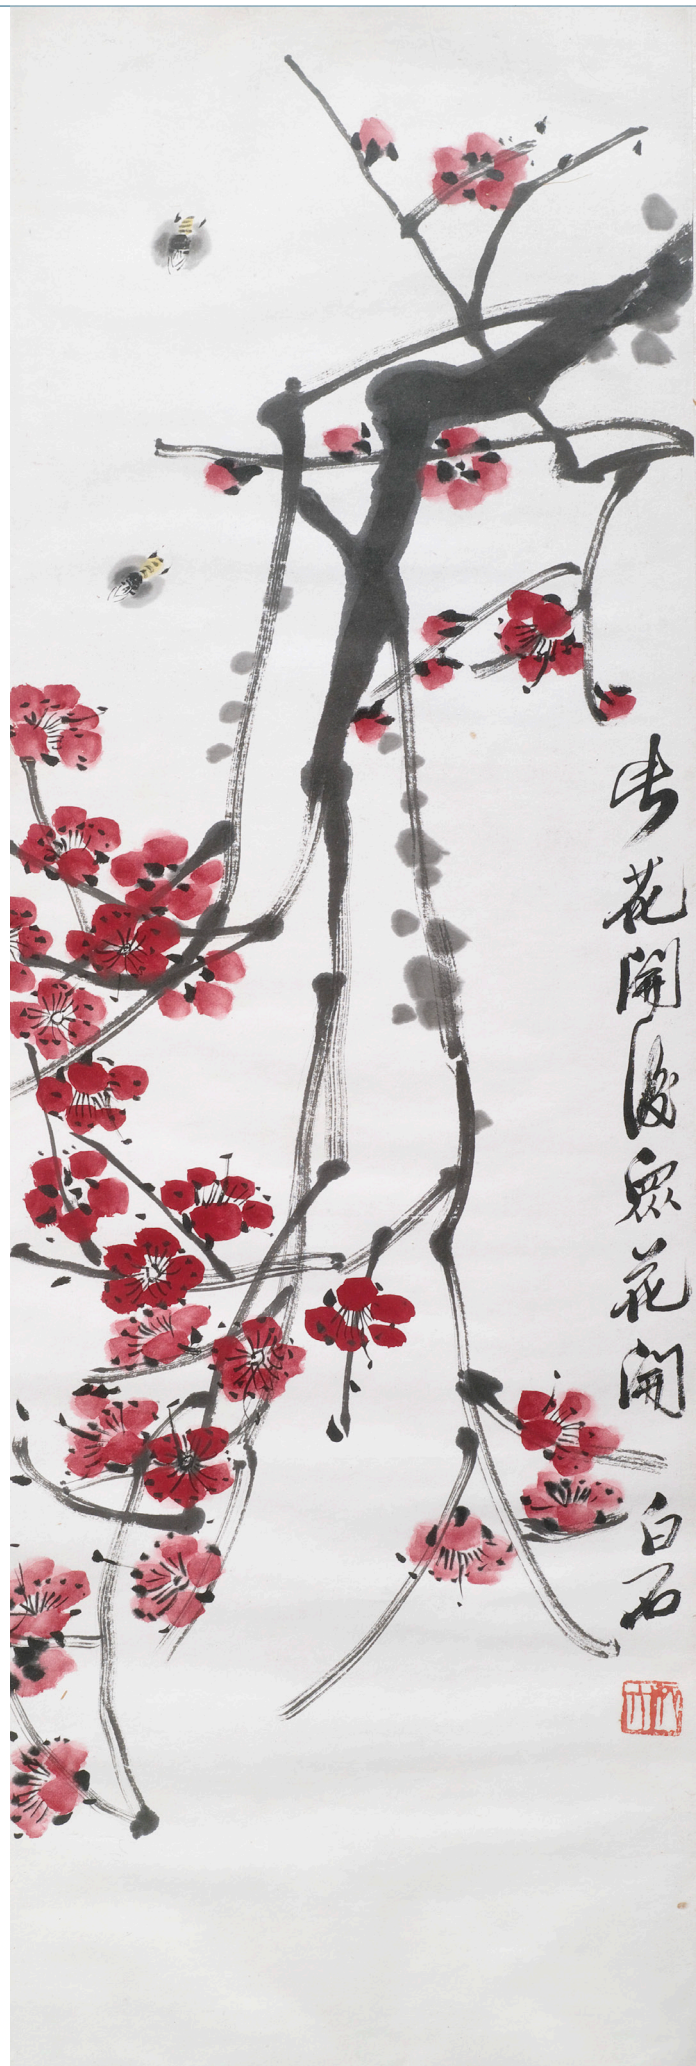 此花開後眾花開
白石